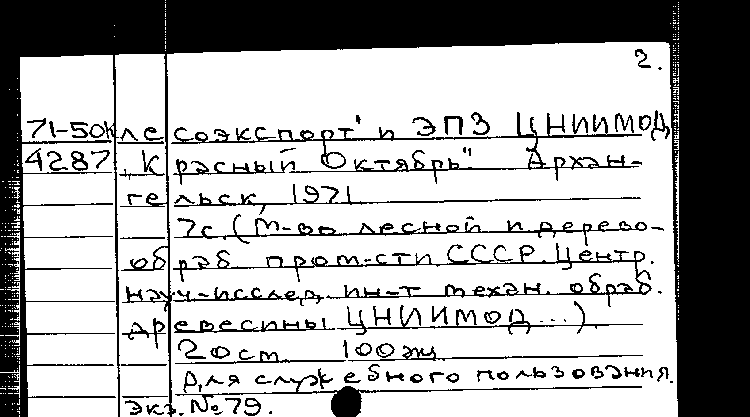 2.
71-50к лесоэкспорт" и ЭПЗ ЦНИИМОД
4287 "Красный Октябрь". Архан-
гельск, 1971
7с. (М-во лесной и дерево-
обраб. пром-сти СССР. Центр.
науч.-исслед. ин-т механ. обраб.
древесины ЦНИИМОД...).
20см. 100экз.
Для служебного пользования.
Экз. №79.